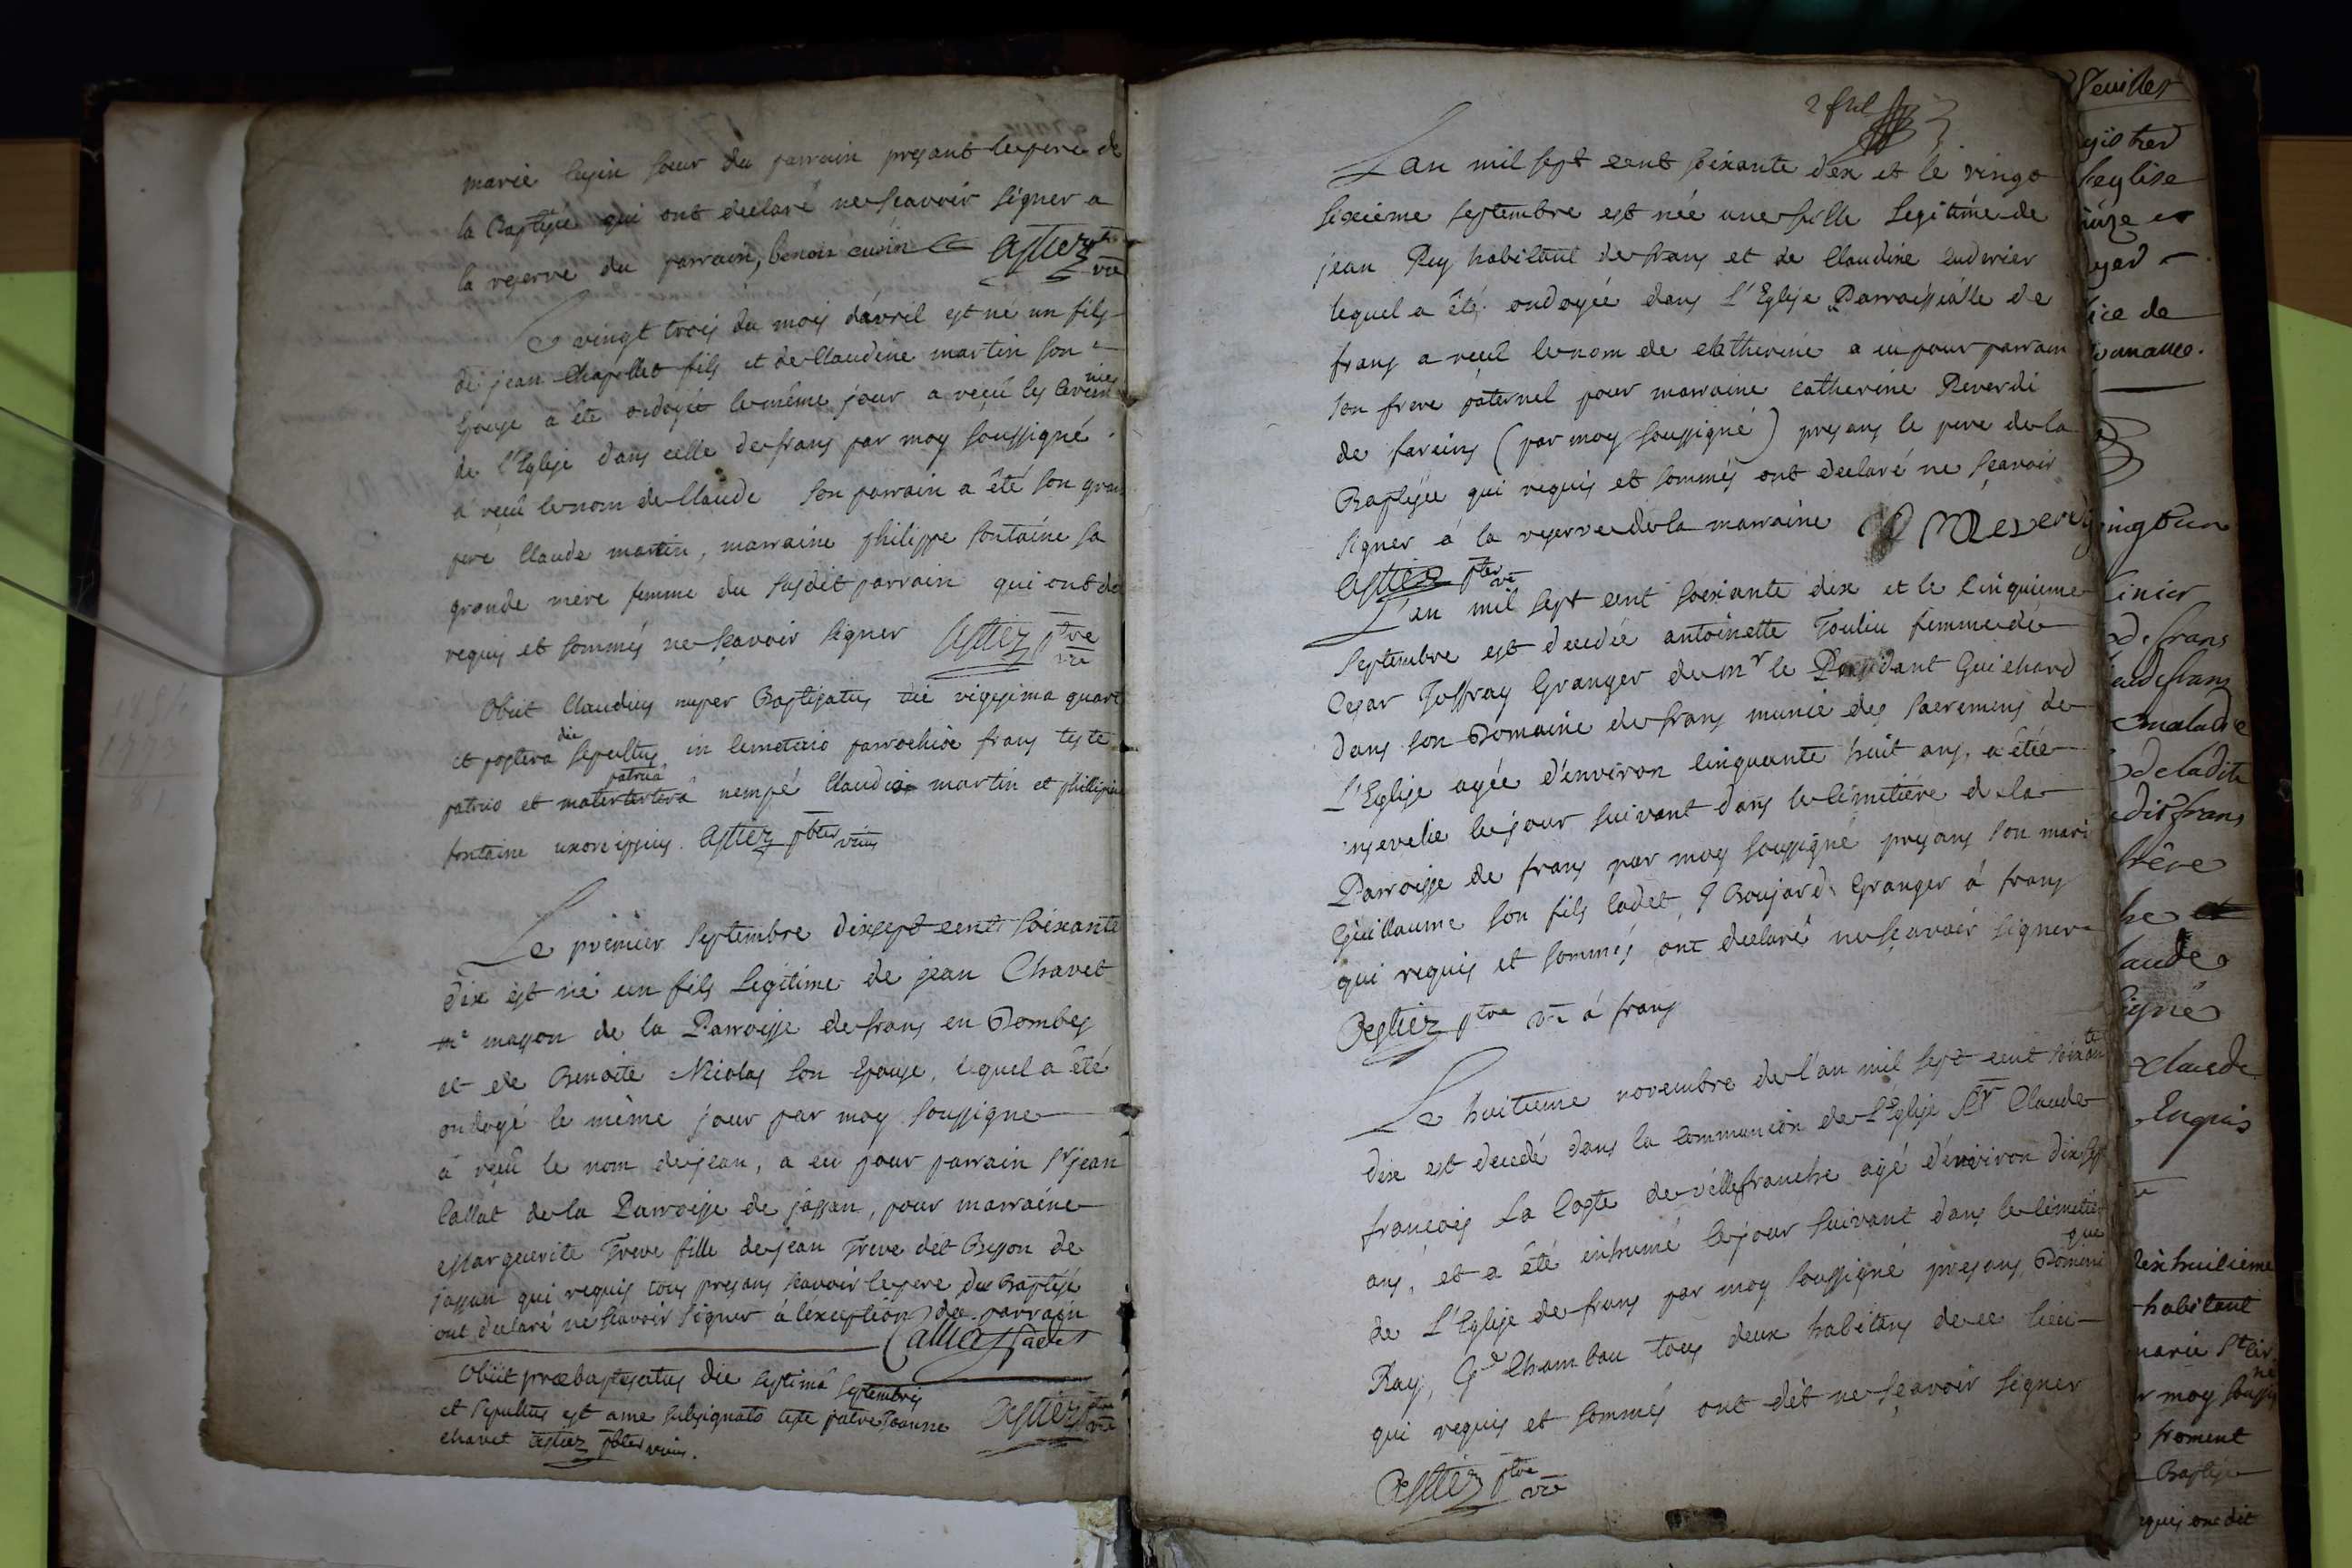 marie cusin sœur du parrain presant le pere de
la Baptisée qui ont declaré ne scavoir signer a
la reserve du parrain, benoit cusin Astier ptre vre
Le vingt trois du mois d'avril est né un fils
de jean Chapollet fils et de Claudine martin son
Epouse a été ondoyé le même jour a reçû les ceremonies
de l'Eglise dans celle de frans par moy soussigné
a reçû le nom de Claude son parrain a été son grand
pere Claude martin, marraine philippe fontaine sa
grande mere femme du susdit parrain qui ont de
requis et sommés ne scavoir signer Astier ptre vre
Obiit Claudius nuper Baptisatus die vigesima quart
et postera die sepultus in cemeterio parrochiæ frans teste
patruo et patrua nempé Claudio martin et philippin
fontaine uxore ipsius. Astier pbter vrius
Le premier septembre dixsept cent soixante
dix est né un fils Legitime de jean Chavet
me maçon de la Parroisse de frans en Dombes
et de Benoite Nicolas son Epouse, lequel a été
ondoyé le même jour par moy soussigné
a reçû le nom de jean, a eu pour parrain sr jean
Callat de la Parroisse de jassan, pour marraine
Marguerite Treve fille de jean Treve dit Besson de
jassan qui requis tous presans scavoir le pere du Baptisé
ont declaré ne scavoir signer à l'exception du parrain
Obiit præbaptisatus die septimâ septembris
et sepultus est a me subsignato teste patre Joanne Astier ptre vre
chavet astier pbter vrius.
2 feul
L'an mil sept cent soixante dix et le vingt
sixieme septembre est née une fille Legitime de
jean Rey habitant de frans et de Claudine
lequel a été ondoyée dans l'Eglise Parroissialle de
frans a reçû le nom de Catherine a eu pour parrain
son frere paternel pour marraine catherine Reverdi
de fareins (par moy soussigné) presans le pere de la
Baptisée qui requis et sommés ont declaré ne sçavoir
signer a la reserve de la marraine
Astier pter vre
L'an mil sept cent soixante dix et le cinquieme
septembre est decedée antoinette Toulieu femme de
Cesar Joffray Granger de mr le President Guichard
dans son Domaine de frans munie des sacremens de
L'Eglise agée d'environ cinquante huit ans, a étée
insevelie le jour suivant dans le cimetiére de la
Parroisse de frans par moy soussigné presans son mari
Guillaume son fils cadet, Boujard Granger á frans
qui requis et sommés ont declaré ne sçavoir signer
Astier ptre vre á frans
Le huitieme novembre de l'an mil sept cent soixante
dix est decedé dans la communion de L'Eglise Sr Claude
françois La Coste de villefranche agé d'environ dixsept
ans, et a été inhumé le jour suivant dans le cimetier
de L'Eglise de frans par moy soussigné presans Dominique
Ray, Chambau tous deux habitans de ce lieu
qui requis et sommés ont dit ne sçavoir signer
Astier ptre vre
feuillet
l'eglise
ice de
ing tun
de frans
maladie
de ladite
dit frans
claude
Enquis
dix huitieme
habitant
r moy souss
froment
Baptise
equis ont dit